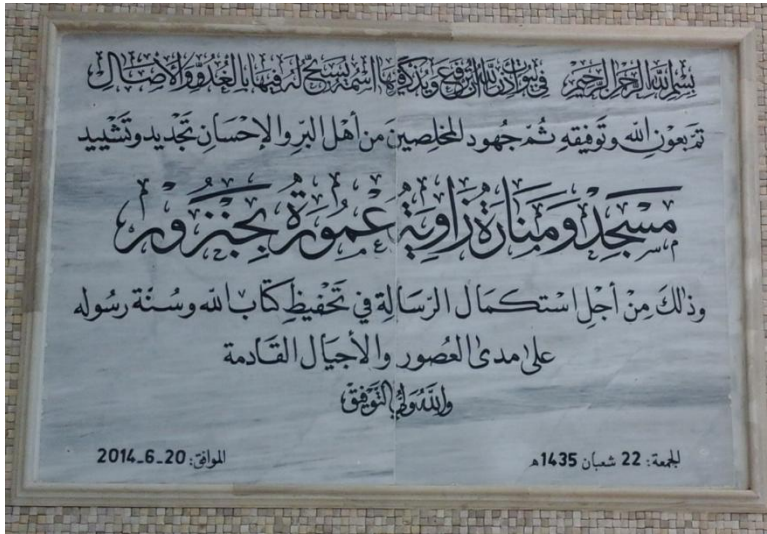 بِسْمِ اللهِ الرَّحْمٰنِ الرَّحِيمِ فِي بُيُوتٍ أَذِنَ اللهُ أَنْ تُرْفَعَ وَيُذْكَرَ فِيهَا اسْمُهُ يُسَبِّحُ لَهُ فِيهَا بِالْغُدُوِّ وَالْآصَالِ
تمّ بعَوْنِ اللّه وتَوفيقهِ ثُمّ جُهود المخلِصينَ من أهْل البرّ والإحْسَان تجْديد وتَشْييد
مَسْجِدْ وَمَنَارَةْ زَاوِيَةْ عَمُورَةْ بِجَنْزُورْ
وذلكَ مِنْ أجْلِ اسْتكمَال الرّسَالةِ في تَحْفيظِ كتَاب اللّه وسُنّة رسُوله
على مدى العُصُور والأجْيَال القَادمة
واللّهُ وليُّ التّوفيق
الجمعة: 22 شعبان 1435ھ الموافق: 20_6_2014